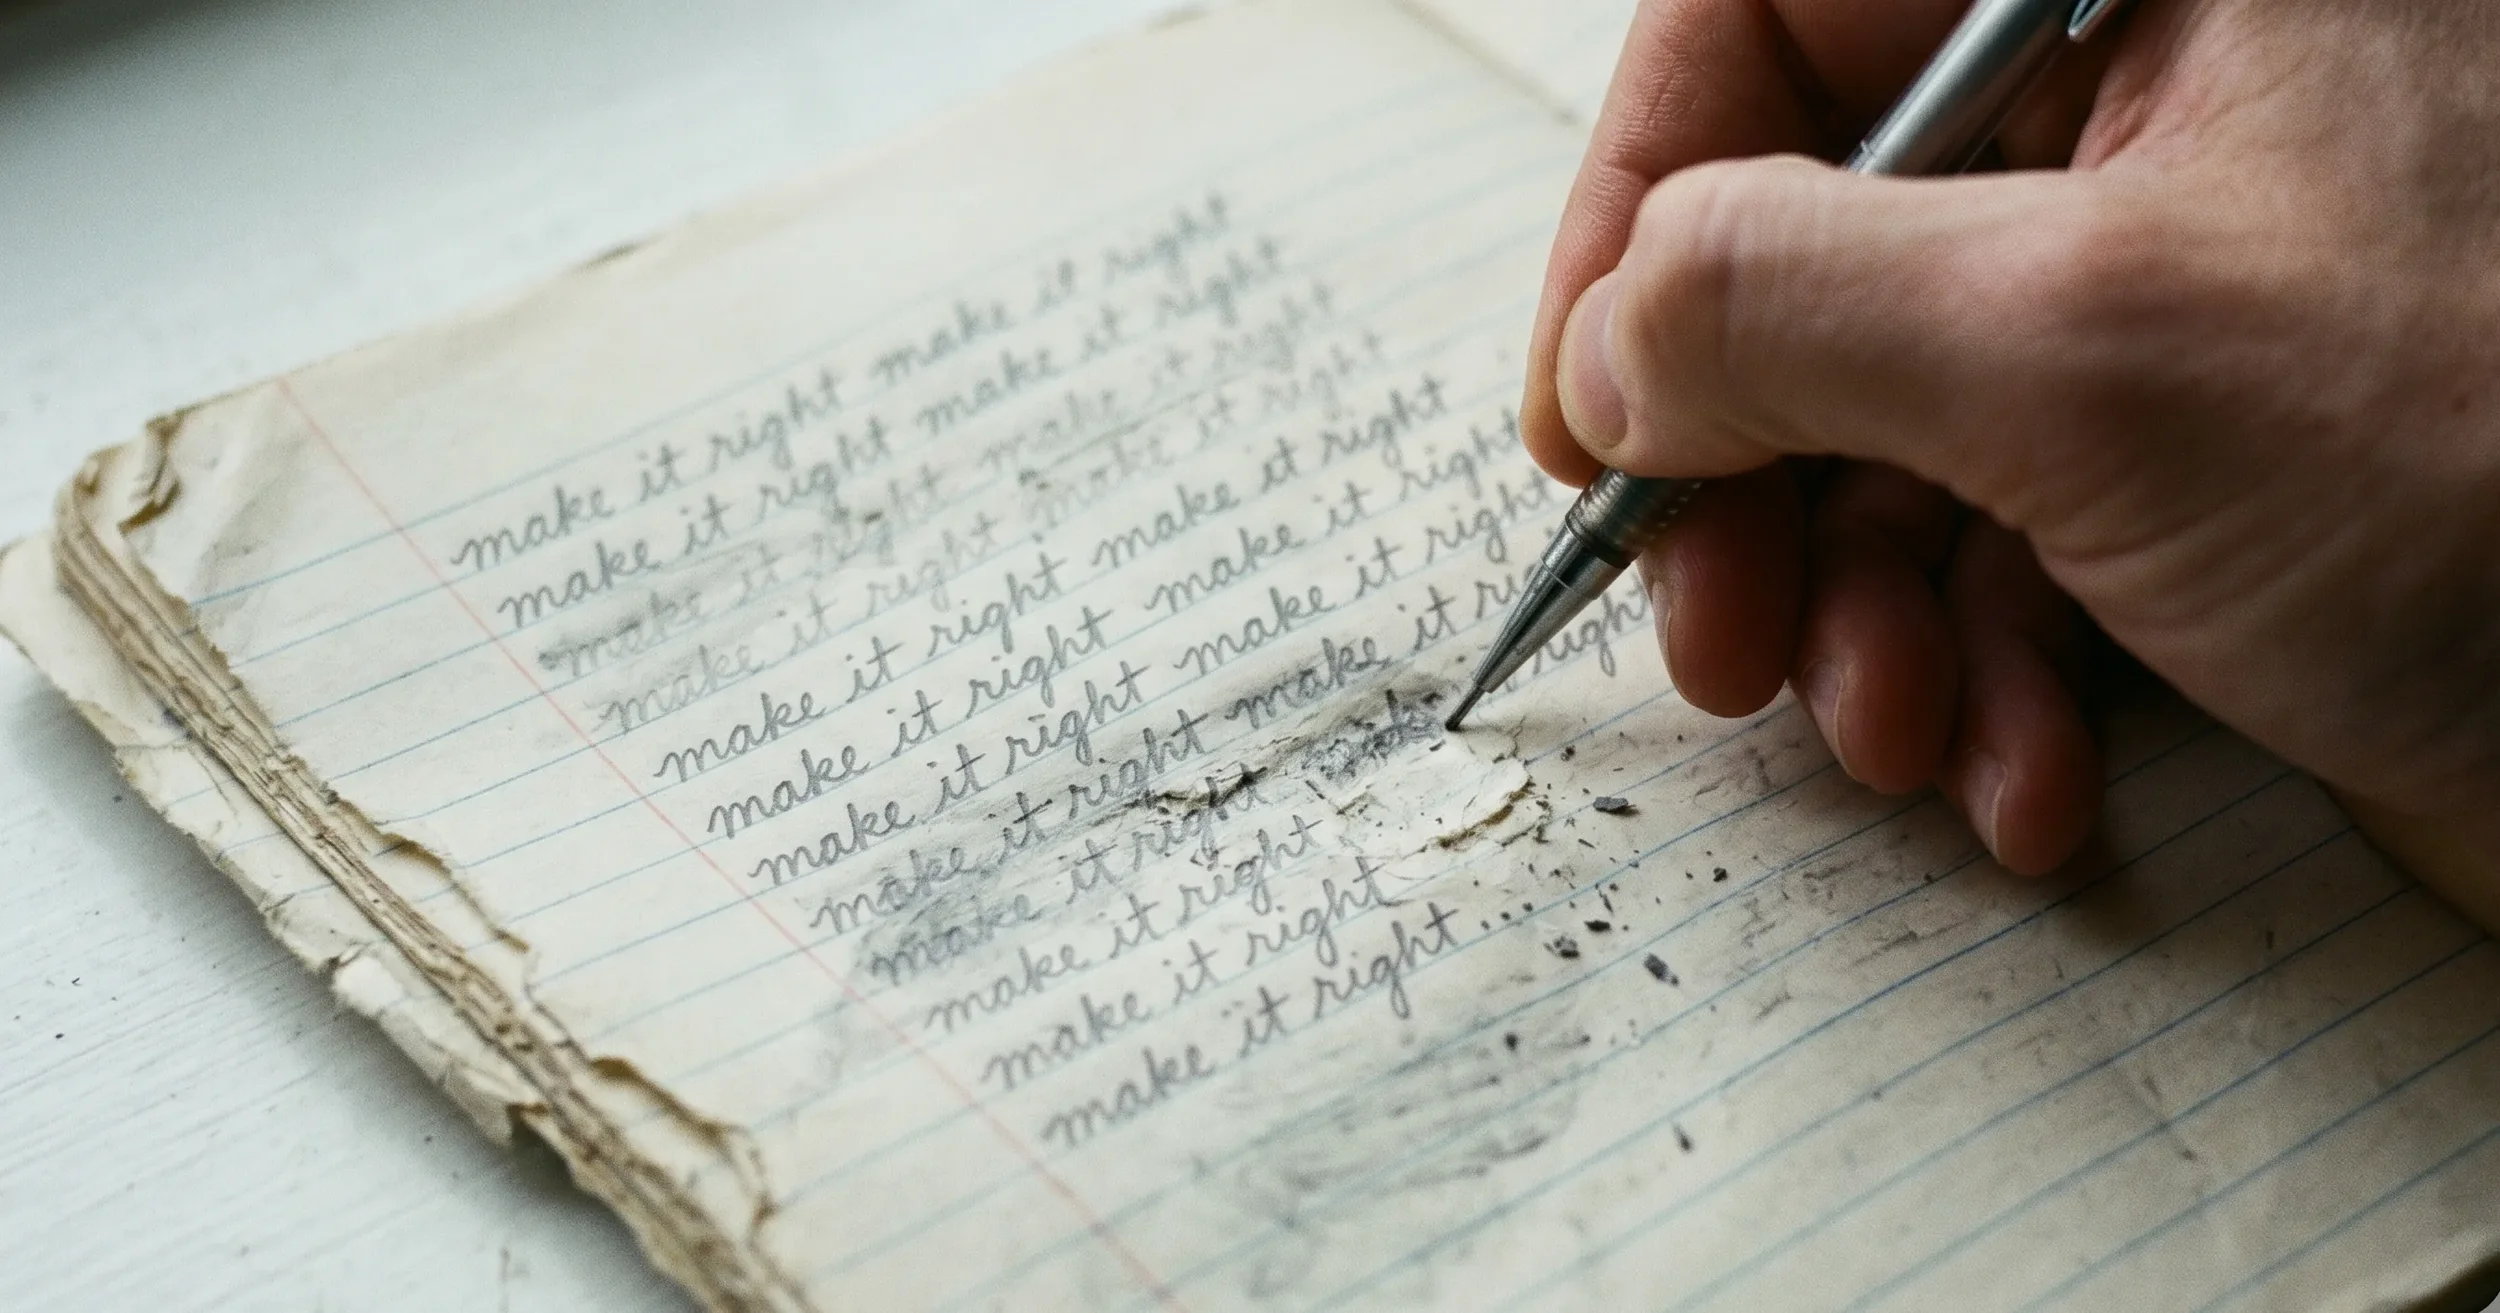 make it right make it right
make it right make it right
make it right make it right
make it right make it right
make it right make it right
make it right make it right
make it right make it right
make it right make it
make it right right
make it right
make it right
make it right...